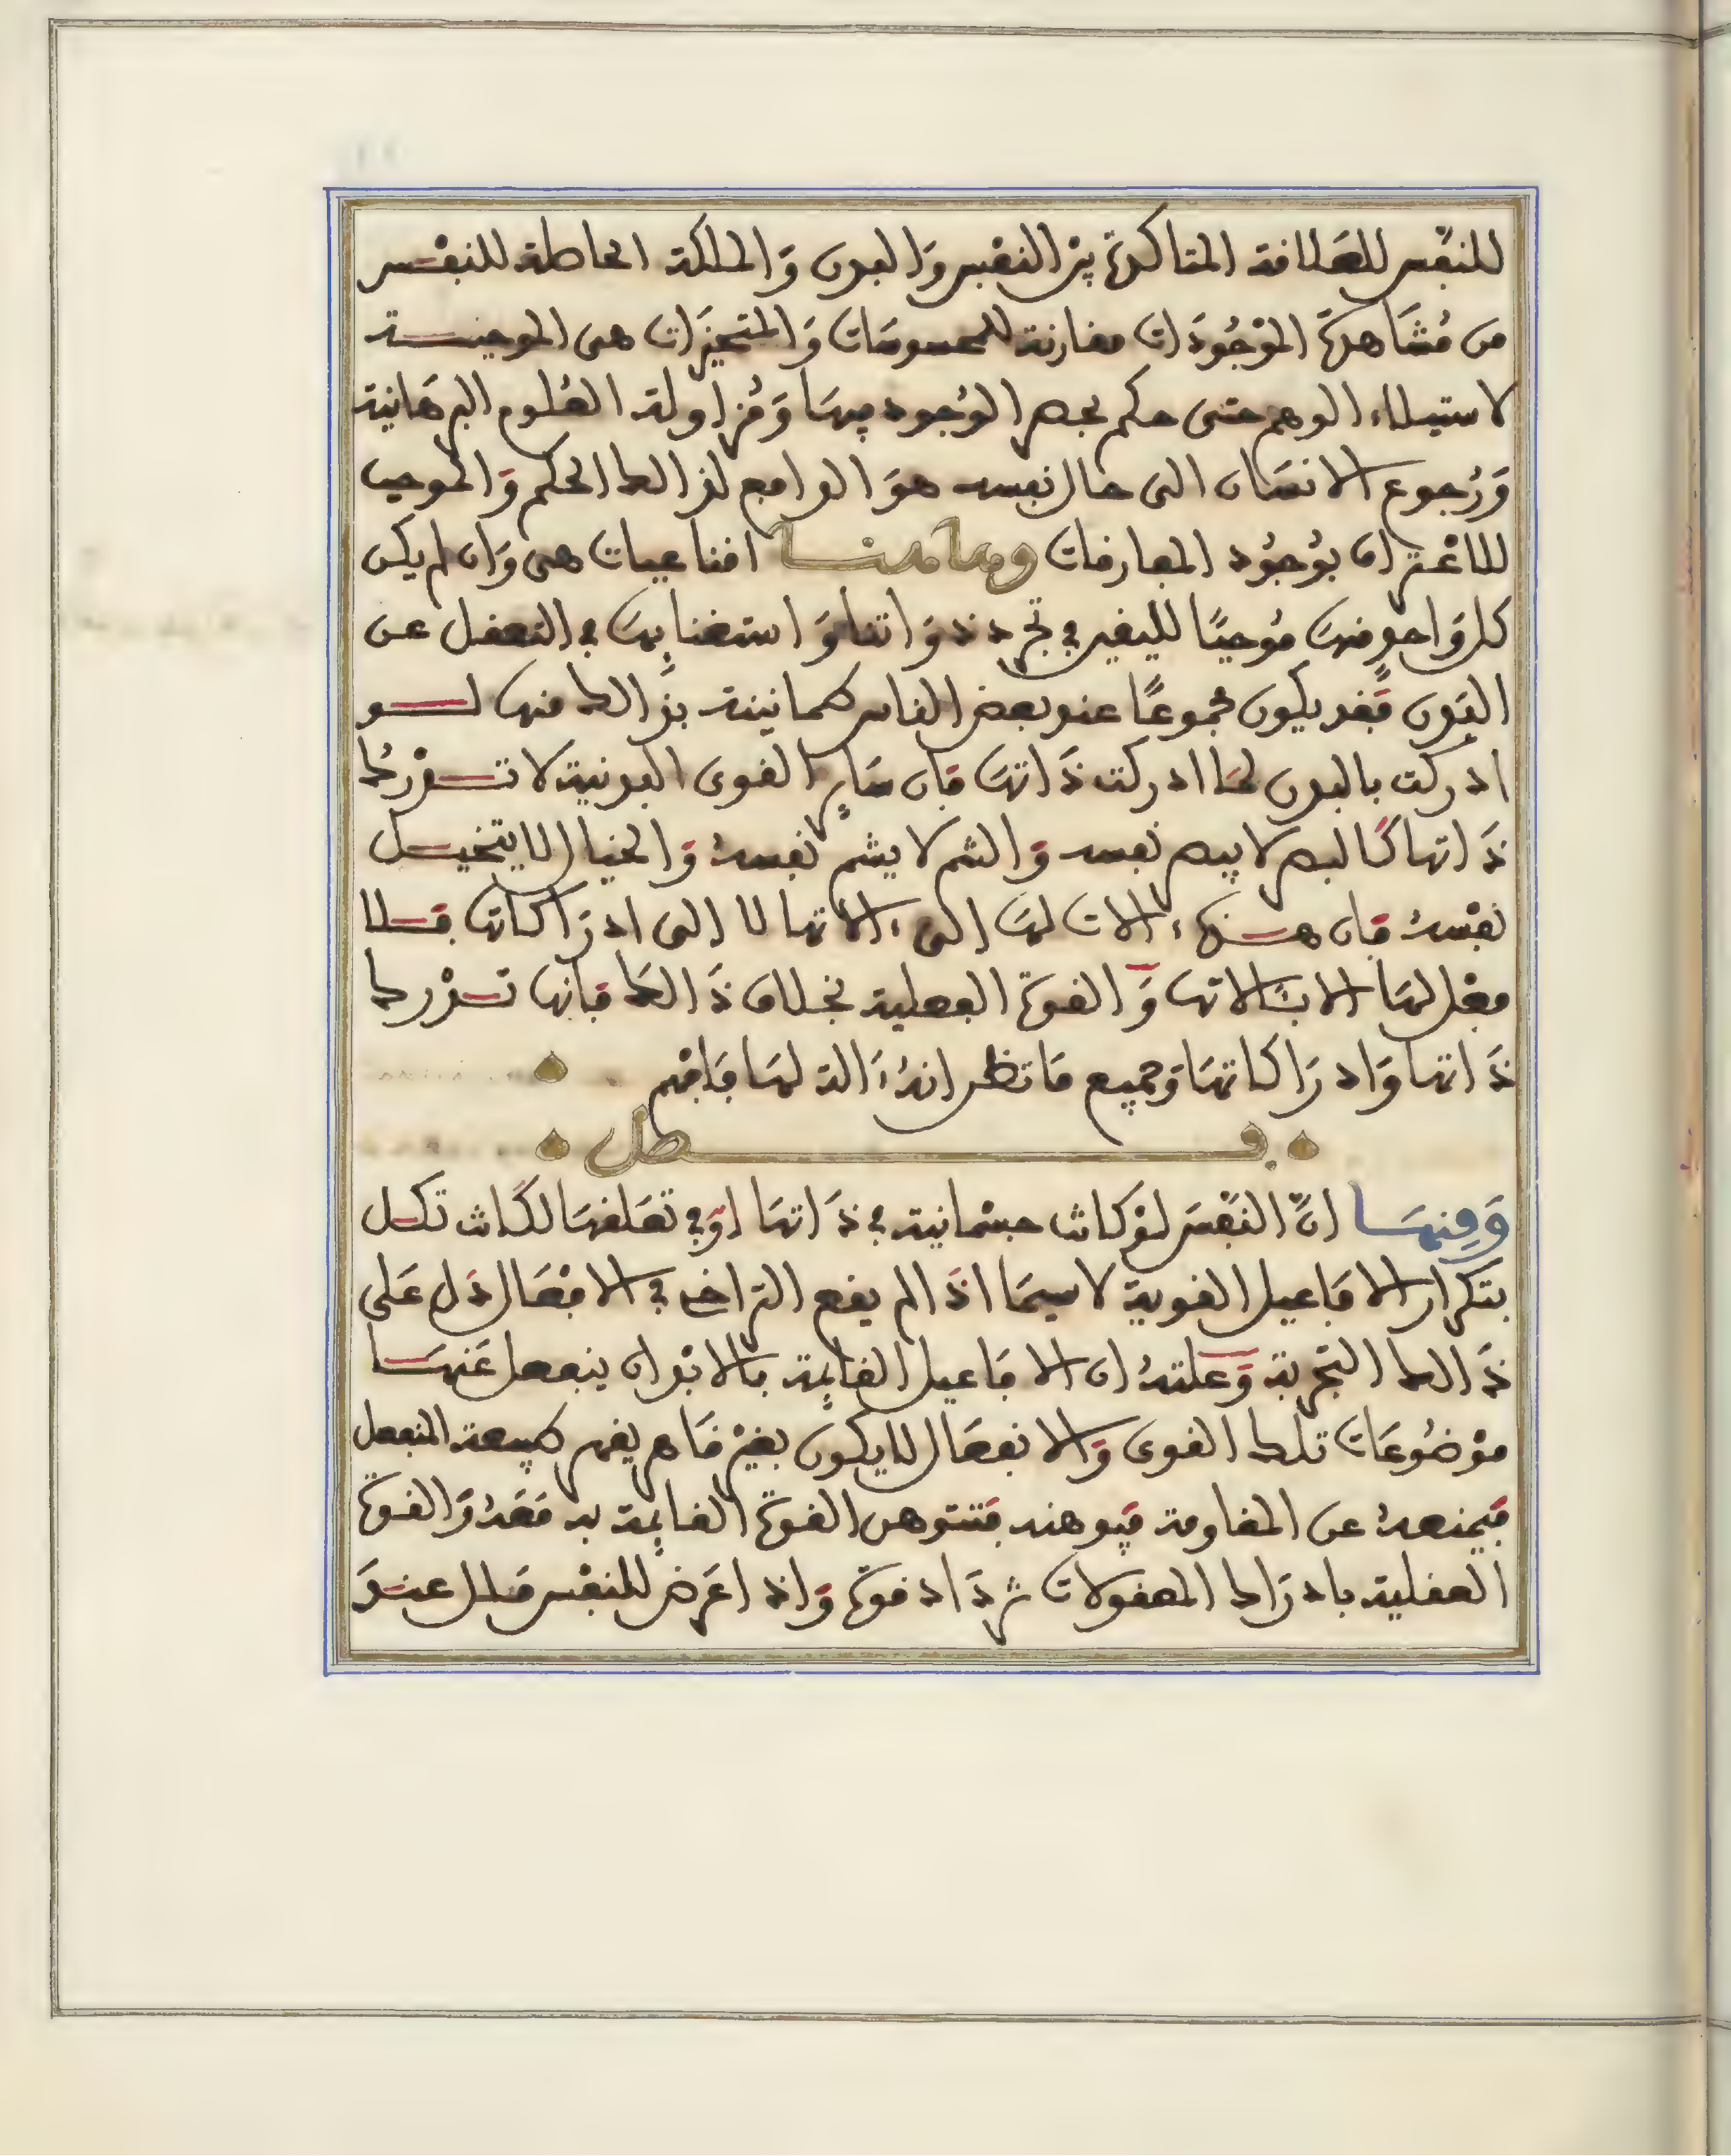 للنفس للعلاقة المتاكدة بين النفس والبدن والملكة الحاصلة للنفس
من مُشَاهدة الموْجُودَات مقارنة للمحسوسَات وَالمتحيزَات هى الموجبة
لاستيلاء الوهم حتى حكم بحصر الوُجود فيهَا وَمُزاولة العُلوم البرهَانية
وَرُجوع الانسَان الى حال نفسه هوَ الدافع لذالك الحكم وَالموجب
للاعْتراف بوُجُود المفارقات وهاهنا اقناعيات هى وَان لم يكن
كل وَاحد منهَا مُوجبًا لليقين في تجرد ذوَاتنا وَاستغنائهَا في التعقل عن
البدن فقد يكون مجموعًا عند بعض الناس كمانينة بذَالك منها لو
ادركت بالبدن لمَا ادركت ذَاتهَا فان سَاير القوى البدنية لا تدْرك
ذَاتها كَالبصر لا يبصر نفسه وَالشم لا يشم نفسهُ وَالخيال لا يتخيل
نفْسهُ فان هذه ءالات لهَا الى ءالاتها لا الى ادرَاكاتها فلا
فعْل لهَا الا بئَالاتها وَالقوة العقلية بخلاف ذَالكَ فانها تدْرك
ذَاتها وَادرَاكاتهَا وَجميع مَا تظن انهُ ءَالة لهَا فَافهْم
فصل
وَمِنهَا انَّ النفْسَ لوْ كانت جسْمانية في ذَاتهَا اوْ في تعَلقهَا لكَانت تكل
بتكرار الافَاعيل القوية لا سيمَا اذَا لم يقع التراخى في الافْعَال دَل عَلى
ذَالك التجربة وَعلتهُ ان الافَاعيل القائمة بالابْدان ينفعل عَنهَا
موْضُوعَات تلك القوى وَالانفعَال لا يكون بغيْر قَاهر يقهر طبيعة المنفعل
فيمنعهُ عن المقاومة فيوهنه فتتوهن القوة القائمة به مَعَهُ وَالقوة
العقلية بادرَاك المعقولات تزدَاد قوة وَاذا عَرض للنفْس مَلال عندَ